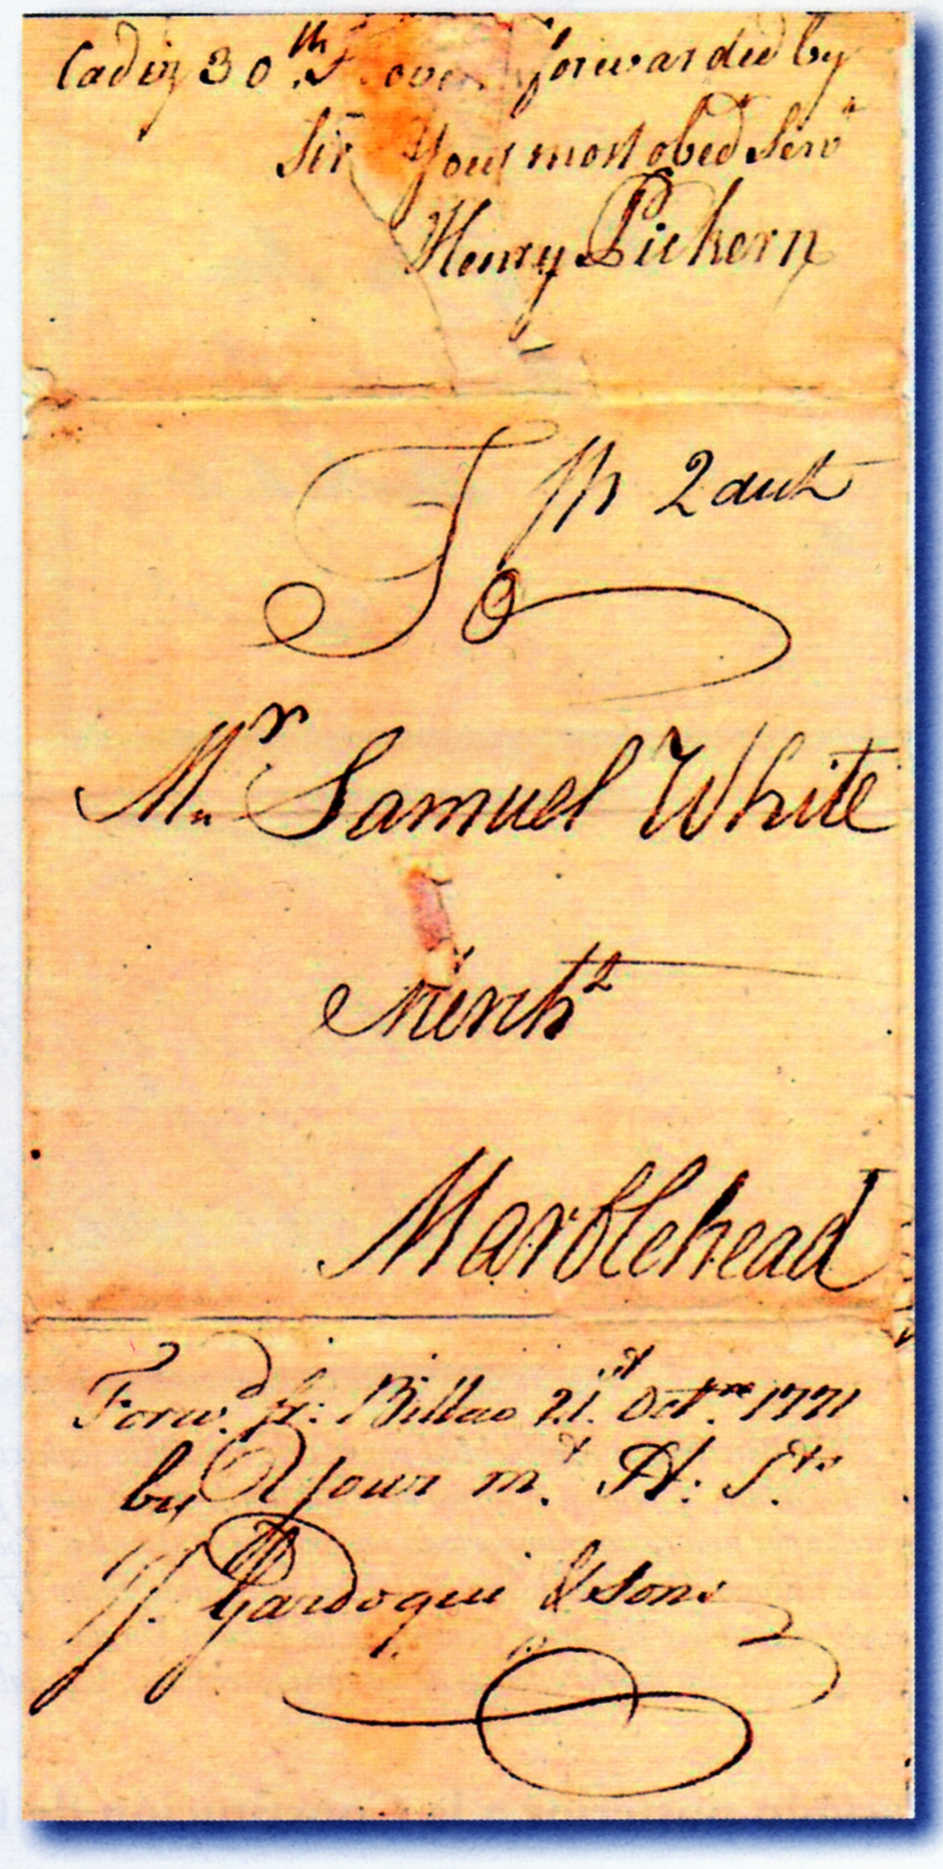 Cadiz 30th Novem forwarded by
Sir Your most obed Servt
Henry Pickern
To
2 dwt
Mr Samuel White
Mercht
Marblehead
Forwd fr: Bilbao 21st Octre 1771
by Your mt H: Sts
J. Gardoqui & sons